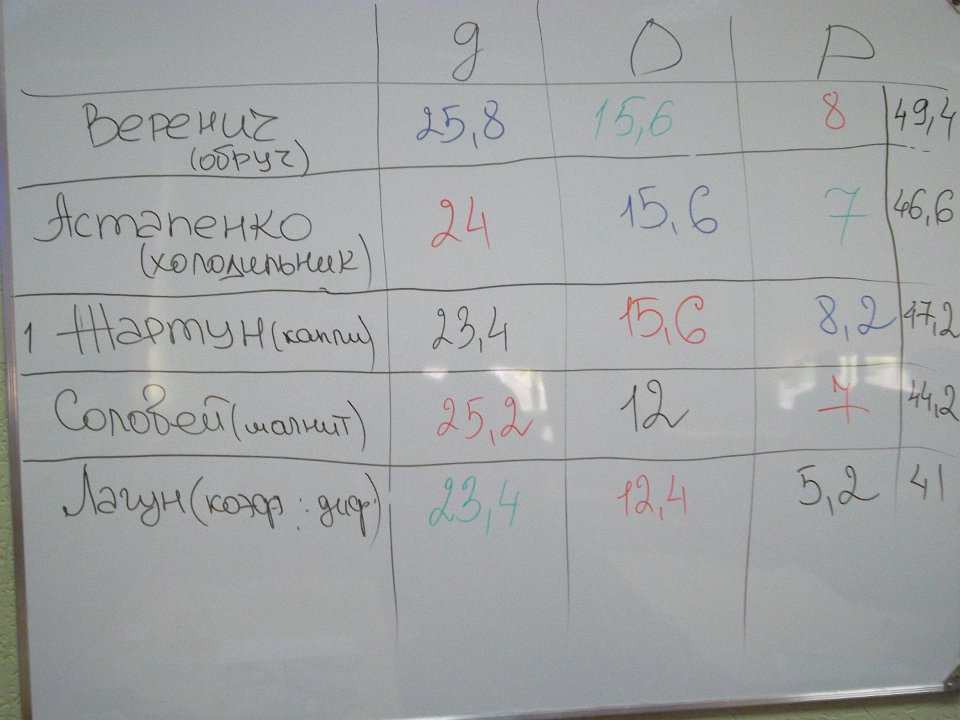 д О Р
Веренич 25,8 15,6 8 49,4
(обруч)
Астапенко 24 15,6 7 46,6
(холодильник)
1 Жартун (капли) 23,4 15,6 8,2 47,2
Соловей (магнит) 25,2 12 7 44,2
Лагун (коэф. диф.) 23,4 12,4 5,2 41